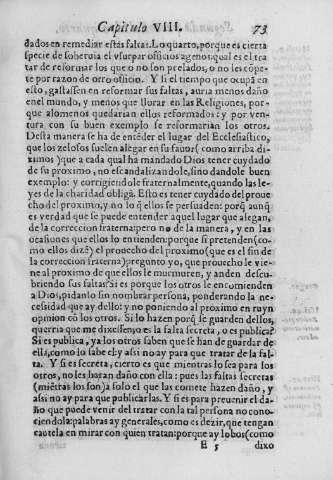 Capitulo VIII. 73
dados en remediar estas faltas. Lo quarto, porque es cierta
specie de soberuia el vsurpar officios agenos: qual es el tra
tar de reformar los que o no son prelados, o no les cōpe-
te por razon de otro officio. Y si el tiempo que ocupā en
esto, gastassen en reformar sus faltas, auria menos daño
en el mundo, y menos que llorar en las Religiones, por-
que alomenos quedarian ellos reformados: y por ven-
tura con su buen exemplo se reformarian los otros.
Desta manera se ha de entēder el lugar del Ecclesiastico,
que los zelosos suelen alegar en su fauor (como arriba di-
ximos) que a cada qual ha mandado Dios tener cuydado
de su proximo, no escandalizandole, sino dandole buen
exemplo: y corrigiendole fraternalmente, quando las le-
yes de la charidad obligā. Esto es tener cuydado del proue
cho del proximo, y no lo q̃ ellos se persuaden: porq̃ aunq̃
es verdad que se puede entender aquel lugar que alegan,
de la correccion fraterna: pero no de la manera, y en las
ocasiones que ellos lo entienden: porque si pretenden (co-
mo ellos dizē) el prouecho del proximo (que es el fin de
la correccion fraterna) pregunto yo, que prouecho le vie-
ne al proximo de que ellos le murmuren, y anden descu-
briendo sus faltas? Si es porque los otros le encomienden
a Dios, pidanlo sin nombrar persona, ponderando la ne-
cessidad que ay dello: y no poniendo al proximo en ruyn
opinion cō los otros. Si lo hazen porq̃ se guarden dellos,
querria que me dixessen, o es la falta secreta, o es publica?
Si es publica, ya los otros saben que se han de guardar de
ella, como lo sabe el: y assi no ay para que tratar de la fal-
ta. Y si es secreta, cierto es que mientras lo sea para los
otros, no les haran daño con ella: pues las faltas secretas
(miētras los son) a solo el que las comete hazen daño, y
assi no ay para que publicarlas. Y si es para preuenir el da-
ño que puede venir del tratar con la tal persona no cono-
ciendola: palabras ay generales, como es dezir, que tengan
cautela en mirar con quien tratan: porque ay lobos (como
E 5 dixo